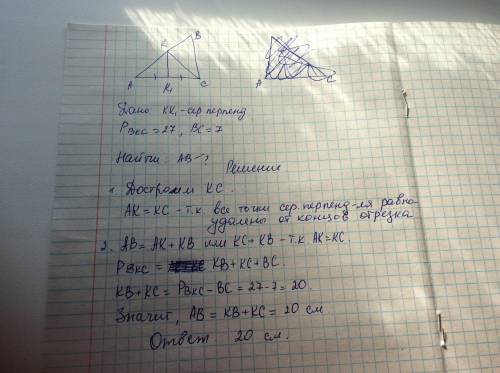 B
K
A
K₁
C
A
C
Дано KK₁ - сер. перпенд
P_BKC = 27, BC = 7
Найти AB - ?
Решение
1. Достроим KC.
AK = KC - т.к. все точки сер. перпенд-ля равно
удалены от концов отрезка
2. AB = AK + KB или KC + KB - т.к. AK = KC.
P_BKC = KB + KC + BC.
KB + KC = P_BKC - BC = 27 - 7 = 20.
Значит, AB = KB + KC = 20 см
Ответ. 20 см.